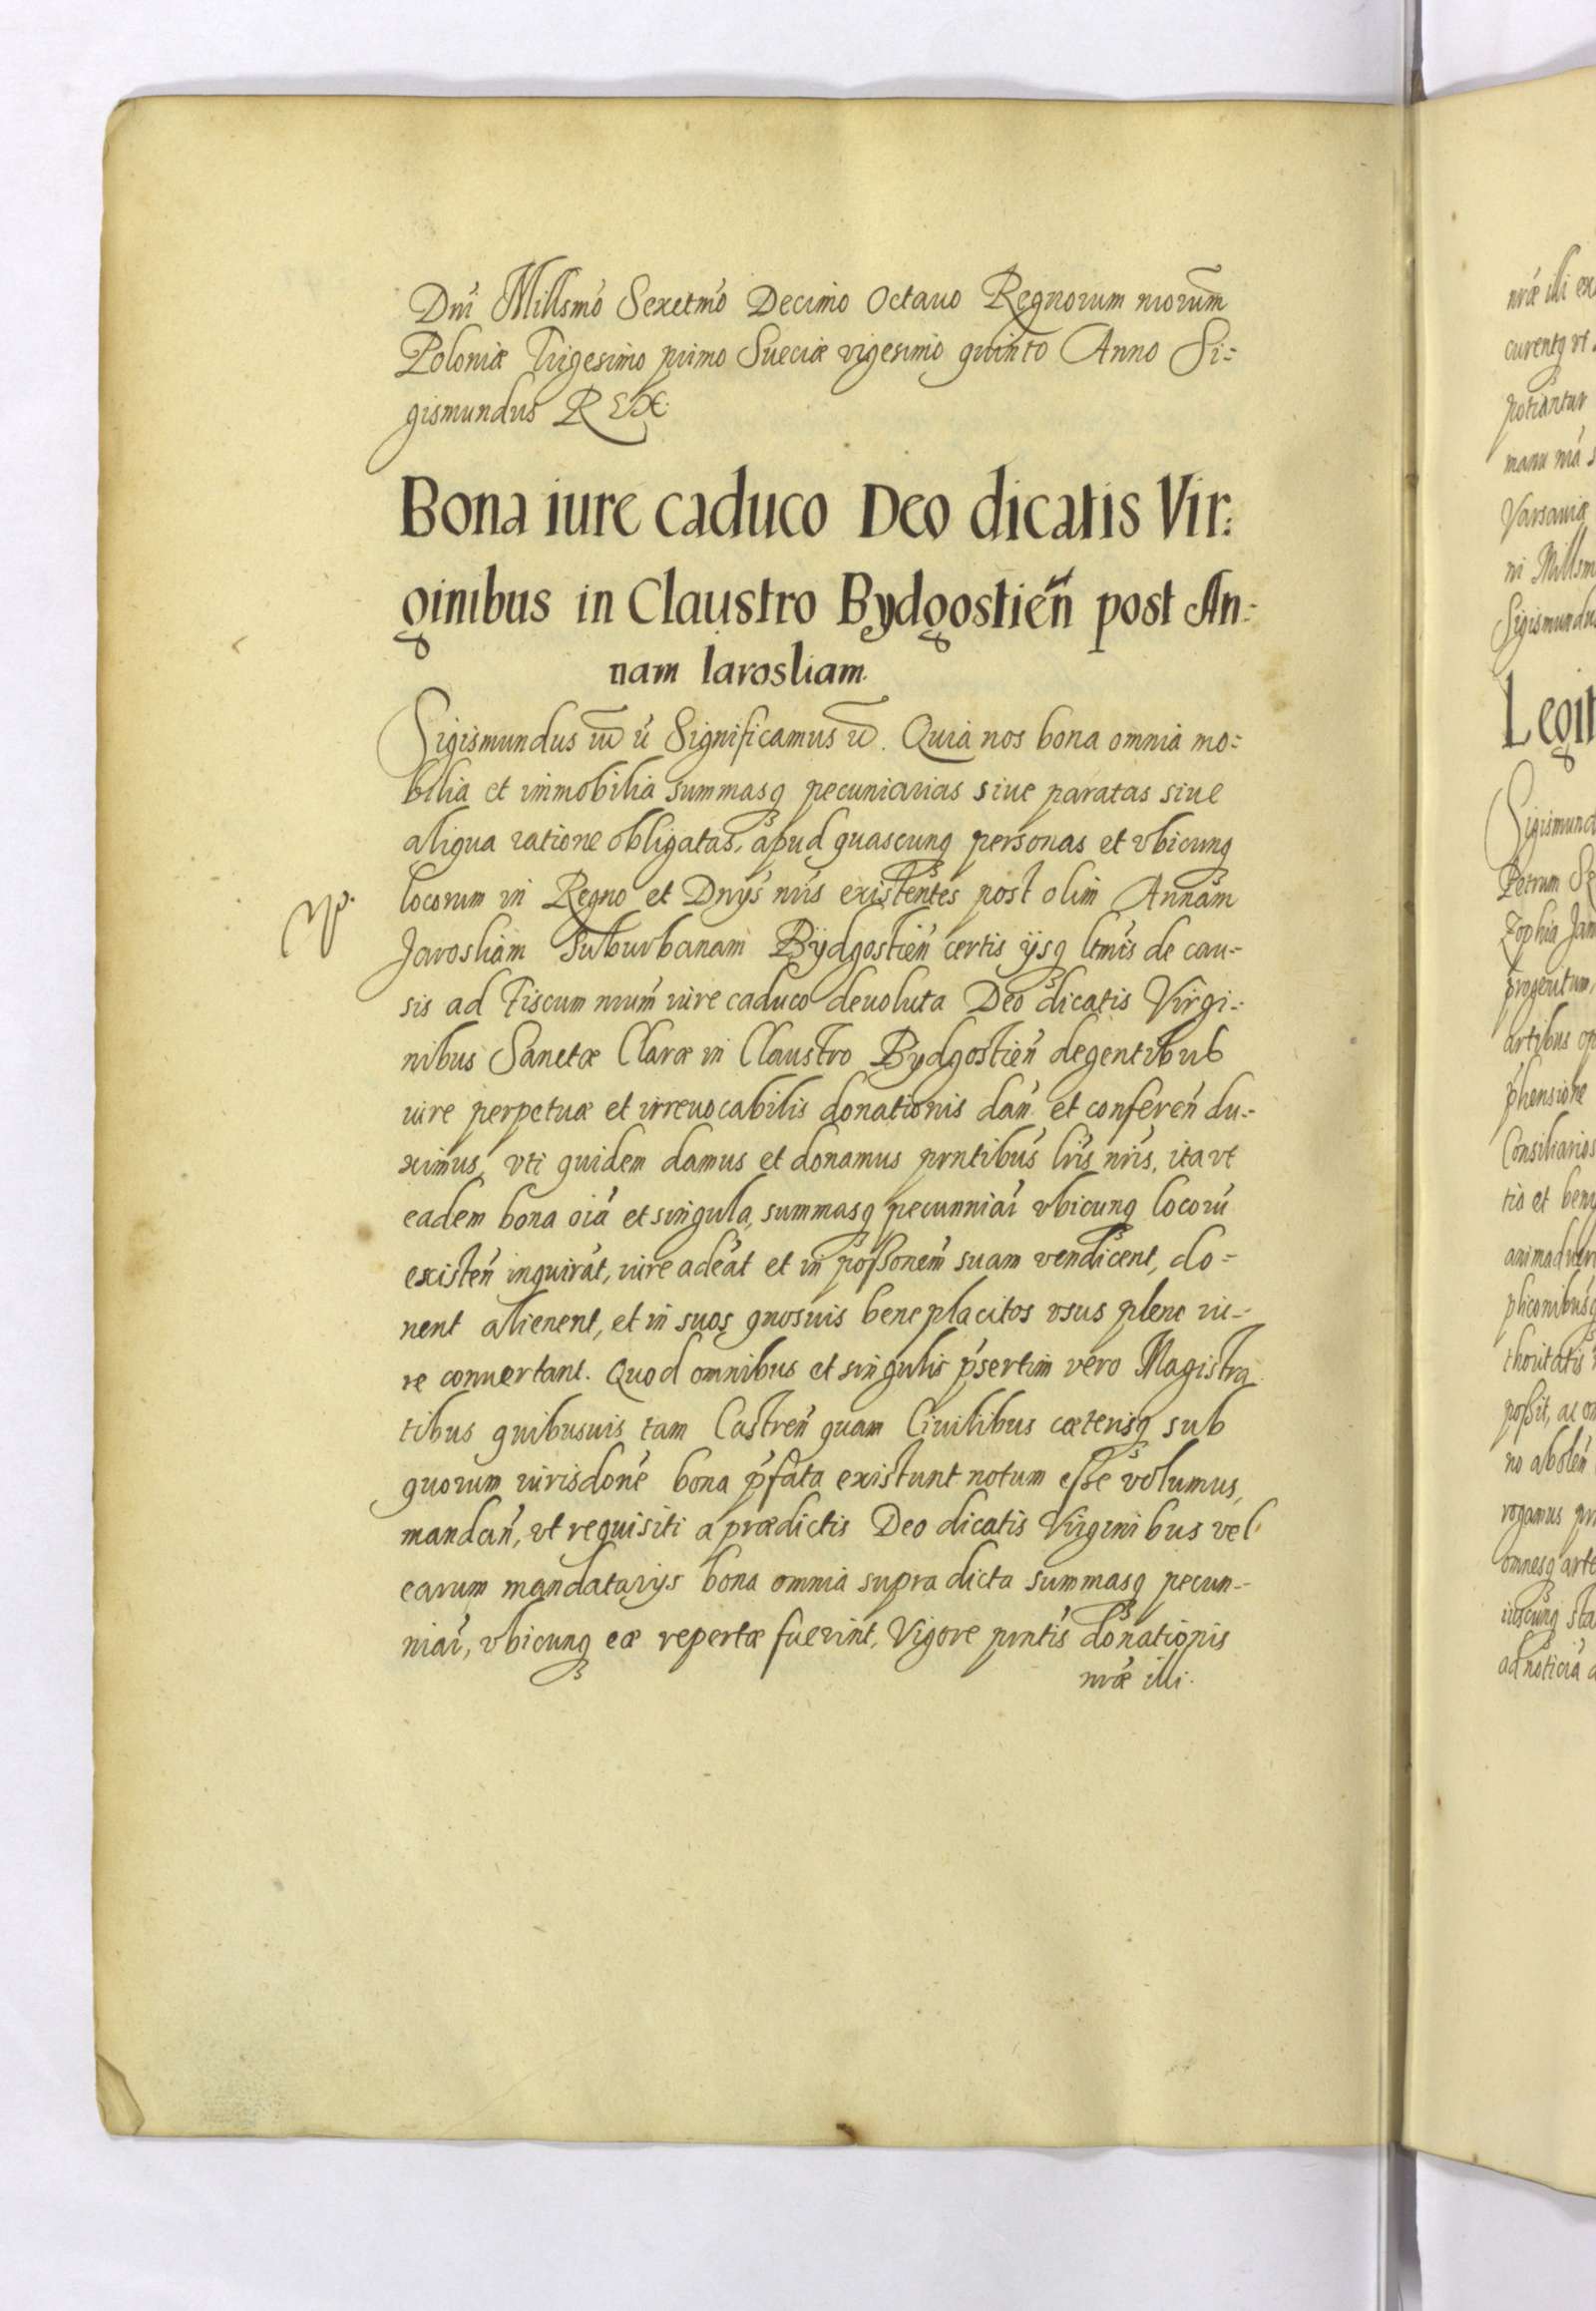 Dni Millsmo Sexetmo Decimo Octauo Regnorum nrorum
Poloniæ Trigesimo primo Sueciæ vigesimo quinto Anno Si-
gismundus REX.
Bona iure caduco Deo dicatis Vir:
ginibus in Claustro Bydgostien̄ post An:
nam Iarosliam.
Sigismundus Significamus Quia nos bona omnia mo-
bilia et immobilia summasq pecuniarias siue paratas siue
aliqua ratione obligatas, apud quascunq personas et vbicunq
locorum in Regno et Dnijs nris existentes post olim Annam
Jarosliam Suburbanam Bydgostien̄ certis ijsq ltmis de cau-
sis ad Fiscum nrum iure caduco deuoluta Deo dicatis Virgi-
nibus Sanctæ Claræ in Claustro Bydgostien̄ degentibus
iure perpetuæ et irreuocabilis donationis dan̄ et conferen̄ du-
ximus, vti quidem damus et donamus prntibus lris nris, ita vt
eadem bona oia et singula, summasq pecunniar̄ vbicunq locorū
existen̄ inquirāt, iure adeāt et in possonem suam vendicent, do-
nent alienent, et in suos quosuis beneplacitos vsus pleno iu-
re conuertant. Quod omnibus et singulis psertim vero Magistra
tibus quibusuis tam Castren̄ quam Ciuilibus cæterisq sub
quorum iurisdone bona pfata existunt notum esse volumus,
mandan̄, vt requisiti a prædictis Deo dicatis Virginibus vel
earum mandatarijs bona omnia supra dicta summasq pecun-
niar̄, vbicunq eæ repertæ fuerint, Vigore prntis donationis
nræ illi.
nræ illi ex
curentq vt
potiantur
manu nra s
Varsauiæ
ni Millsm
Sigismundu
Legit
Sigismund
Petrum Se
Zophia Jan
progenitum,
artibus op
phensione
Consiliarios
tia et beni
animaduer
pliconibusq
thoritatis
possit, ac om
no abolen̄
rogamus pr
omnesq arte
iuscunq sta
ad noticia